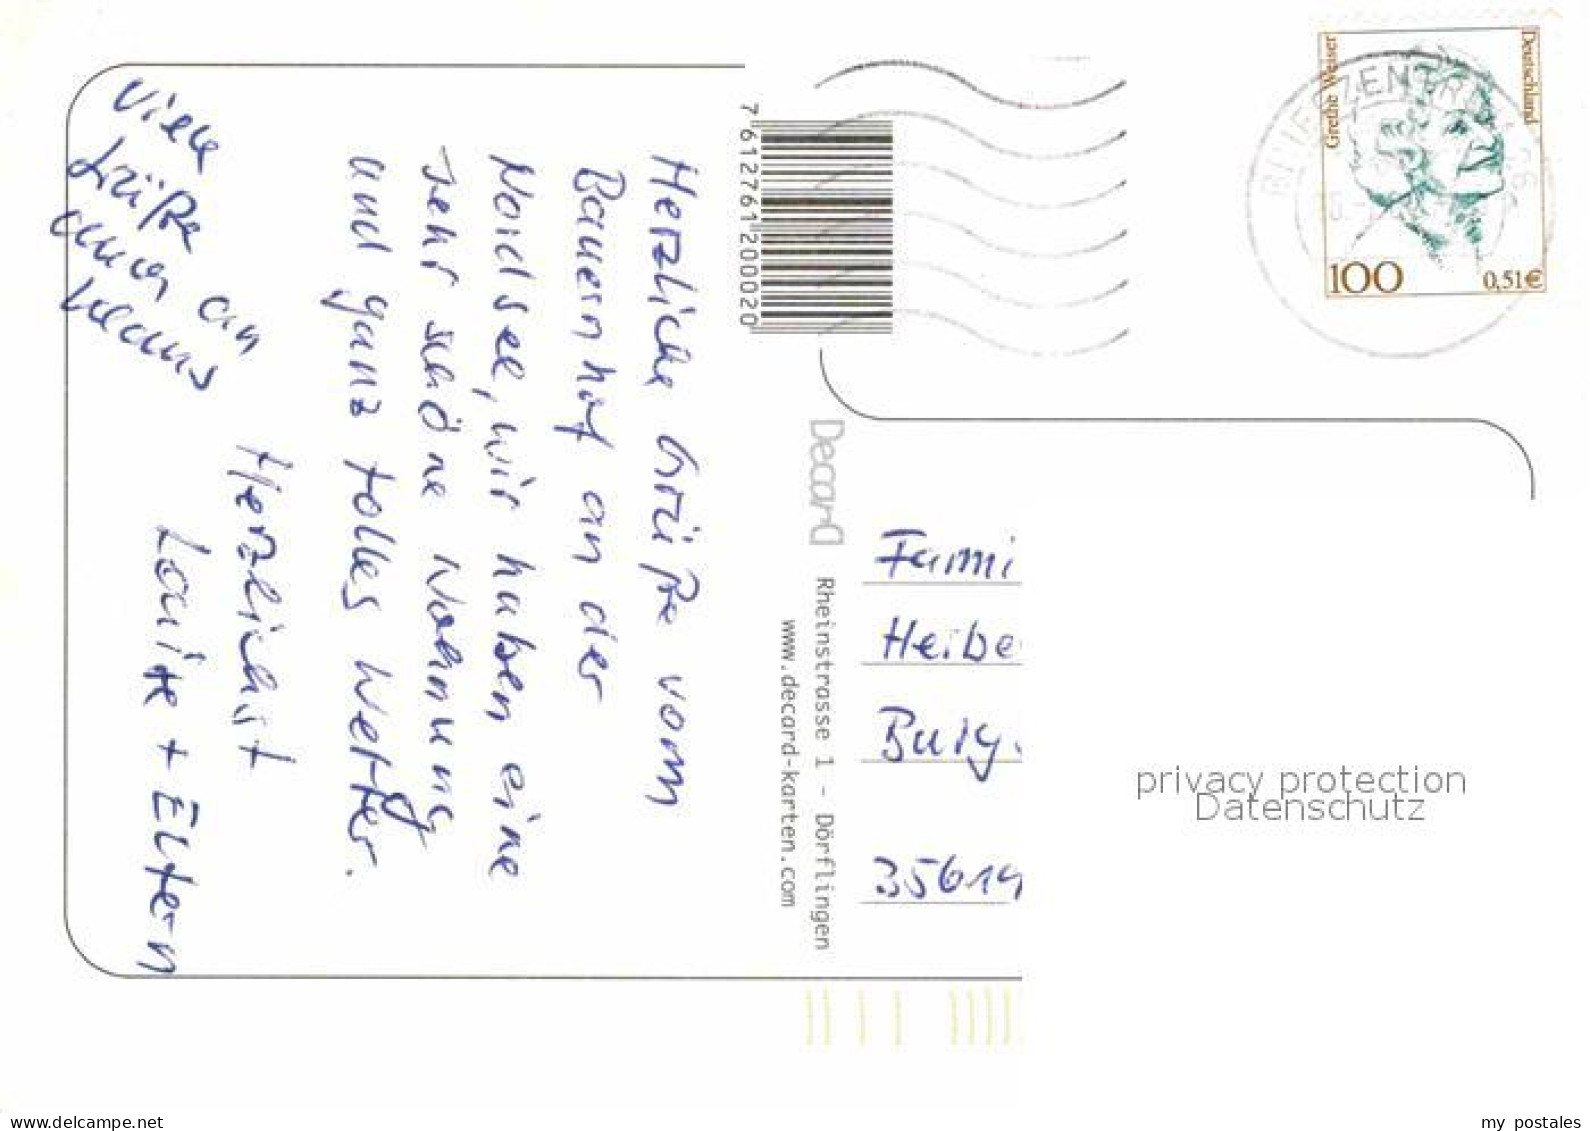 Herzliche Grüße vom
Bauernhof an der
Nordsee, wir haben eine
sehr schöne Wohnung
und ganz tolles Wetter.
Herzlichst
+ Eltern
Viele
Grüße
an
7 612761 200020
Decard
Rheinstrasse 1 - Dörflingen
www.decard-karten.com
BRIEFZENTRUM
Grethe Weiser
Deutschland
100
0,51€
Fami
Heibe
Burg.
35614
privacy protection
Datenschutz
my postales